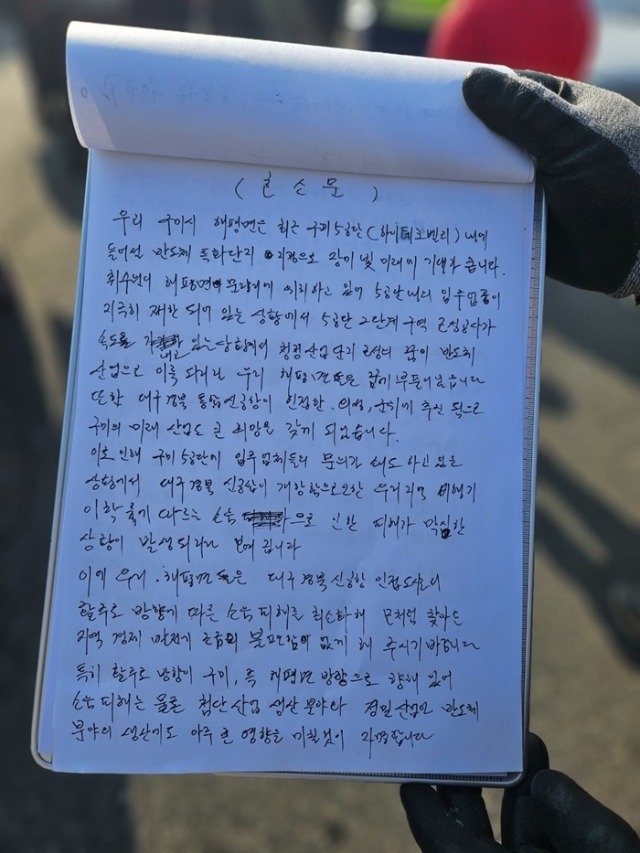 (호소문)
우리 구미시 해평면은 최근 구미5공단(하이테크밸리)내에
들어설 반도체 특화단지 지정으로 장미빛 미래에 기대가 큽니다.
취수원이 해평면 문량리에 위치하고 있어 5공단내의 입주업종이
지극히 제한 되어 있는 상황에서 5공단 2단계 구역 조성공사가
속도를 내고 있는 상황에서 청정산업단지 조성의 꿈이 반도체
산업으로 이룩 되리라 우리 해평면민들은 꿈에 부풀어 있습니다
또한 대구경북 통합신공항이 인접한 의성, 군위에 추진 됨으로
구미의 미래 산업도 큰 희망을 갖게 되었습니다.
이로 인해 구미5공단에 입주업체들의 문의가 쇄도 하고 있는
상황에서 대구경북 신공항이 개항함으로 우리지역 비행기
이착륙에 따르는 소음으로 인한 피해가 막심한
상황이 발생되리라 보여 집니다
이에 우리 해평면민들은 대구경북 신공항 인접도시로의
활주로 방향에 따른 소음피해를 최소화해 모처럼 찾아온
지역 경제 발전에 불편함이 없게 해 주시기 바랍니다
특히 활주로 방향이 구미, 즉 해평면 방향으로 향해 있어
소음피해는 물론 첨단산업 생산분야와 정밀산업인 반도체
분야의 생산에도 아주 큰 영향을 미칠것이 자명합니다